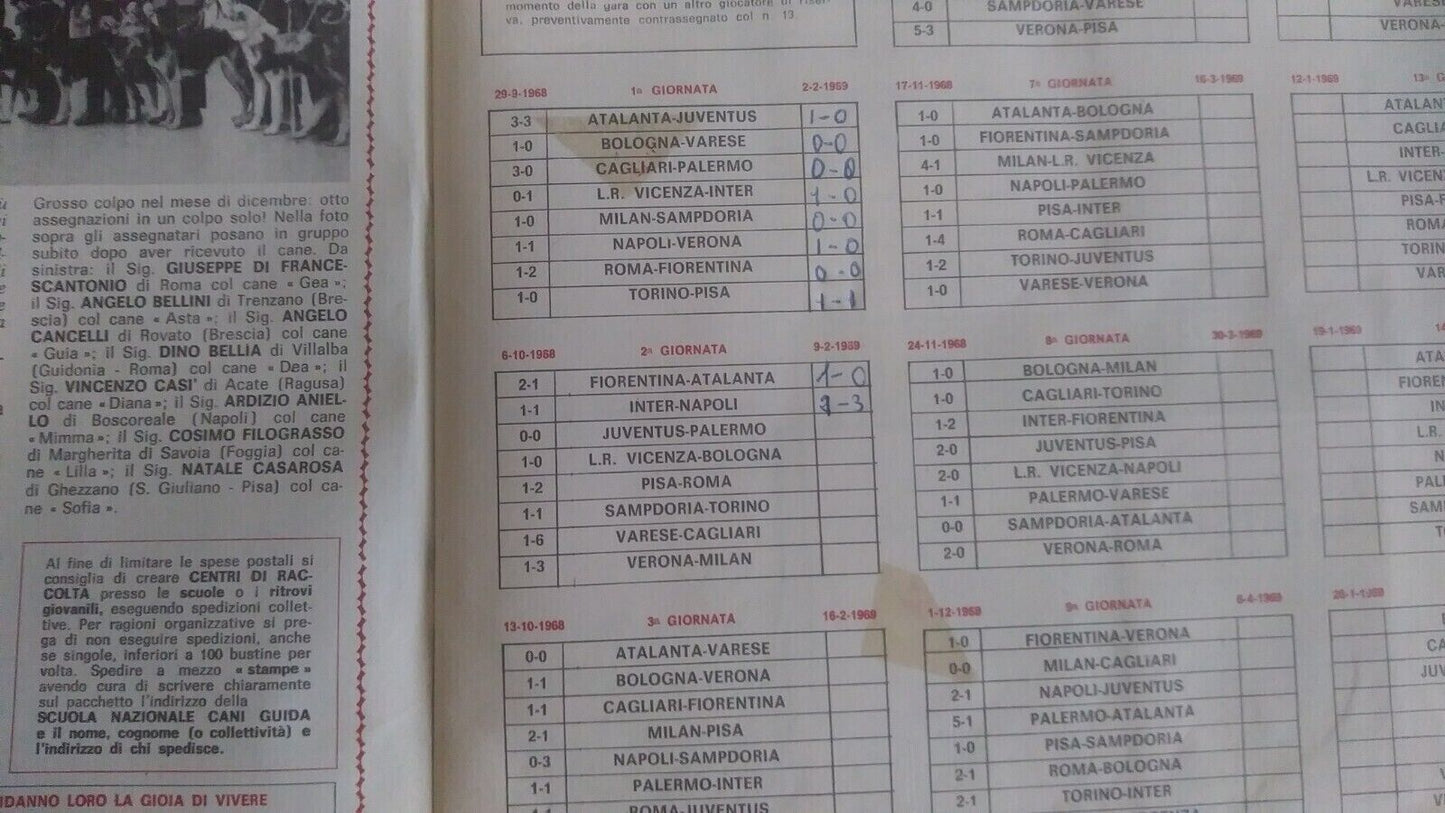 momento della gara con un altro giocatore di riser-
va, preventivamente contrassegnato col n. 13
Grosso colpo nel mese di dicembre: otto
assegnazioni in un colpo solo! Nella foto
sopra gli assegnatari posano in gruppo
subito dopo aver ricevuto il cane. Da
sinistra: il Sig. GIUSEPPE DI FRANCE-
SCANTONIO di Roma col cane « Gea »;
il Sig. ANGELO BELLINI di Trenzano (Bre-
scia) col cane « Asta »; il Sig. ANGELO
CANCELLI di Rovato (Brescia) col cane
« Guia »; il Sig. DINO BELLIA di Villalba
(Guidonia - Roma) col cane « Dea »; il
Sig. VINCENZO CASI' di Acate (Ragusa)
col cane « Diana »; il Sig. ARDIZIO ANIEL-
LO di Boscoreale (Napoli) col cane
« Mimma »; il Sig. COSIMO FILOGRASSO
di Margherita di Savoia (Foggia) col ca-
ne « Lilla »; il Sig. NATALE CASAROSA
di Ghezzano (S. Giuliano - Pisa) col ca-
ne « Sofia ».
Al fine di limitare le spese postali si
consiglia di creare CENTRI DI RAC-
COLTA presso le scuole o i ritrovi
giovanili, eseguendo spedizioni collet-
tive. Per ragioni organizzative si pre-
ga di non eseguire spedizioni, anche
se singole, inferiori a 100 bustine per
volta. Spedire a mezzo « stampe »
avendo cura di scrivere chiaramente
sul pacchetto l'indirizzo della
SCUOLA NAZIONALE CANI GUIDA
e il nome, cognome (o collettività) e
l'indirizzo di chi spedisce.
IDANNO LORO LA GIOIA DI VIVERE
29-9-1968 1ª GIORNATA 2-2-1969
3-3 ATALANTA-JUVENTUS 1-0
1-0 BOLOGNA-VARESE 0-0
3-0 CAGLIARI-PALERMO 0-0
0-1 L.R. VICENZA-INTER 1-0
1-0 MILAN-SAMPDORIA 0-0
1-1 NAPOLI-VERONA 1-0
1-2 ROMA-FIORENTINA 0-0
1-0 TORINO-PISA 1-1
6-10-1968 2ª GIORNATA 9-2-1969
2-1 FIORENTINA-ATALANTA 1-0
1-1 INTER-NAPOLI -3
0-0 JUVENTUS-PALERMO
1-0 L.R. VICENZA-BOLOGNA
1-2 PISA-ROMA
1-1 SAMPDORIA-TORINO
1-6 VARESE-CAGLIARI
1-3 VERONA-MILAN
13-10-1968 3ª GIORNATA 16-2-1969
0-0 ATALANTA-VARESE
1-1 BOLOGNA-VERONA
1-1 CAGLIARI-FIORENTINA
2-1 MILAN-PISA
0-3 NAPOLI-SAMPDORIA
1-1 PALERMO-INTER
1-1 ROMA-JUVENTUS
4-0 SAMPDORIA-VARESE
5-3 VERONA-PISA
17-11-1968 7ª GIORNATA 16-3-1969
1-0 ATALANTA-BOLOGNA
1-0 FIORENTINA-SAMPDORIA
4-1 MILAN-L.R. VICENZA
1-0 NAPOLI-PALERMO
1-1 PISA-INTER
1-4 ROMA-CAGLIARI
1-2 TORINO-JUVENTUS
1-0 VARESE-VERONA
24-11-1968 8ª GIORNATA 30-3-1969
1-0 BOLOGNA-MILAN
1-0 CAGLIARI-TORINO
1-2 INTER-FIORENTINA
2-0 JUVENTUS-PISA
2-0 L.R. VICENZA-NAPOLI
1-1 PALERMO-VARESE
0-0 SAMPDORIA-ATALANTA
2-0 VERONA-ROMA
1-12-1968 9ª GIORNATA 6-4-1969
1-0 FIORENTINA-VERONA
0-0 MILAN-CAGLIARI
2-1 NAPOLI-JUVENTUS
5-1 PALERMO-ATALANTA
1-0 PISA-SAMPDORIA
2-1 ROMA-BOLOGNA
2-1 TORINO-INTER
VARES
VERONA-
12-1-1969 13ª G
ATALAN
CAGLI
INTER-
L.R. VICEN
PISA-
ROMA
TORIN
VAR
19-1-1969
ATA
FIOREN
IN
L.R.
N
PAL
SAM
26-1-1969
CA
JUV